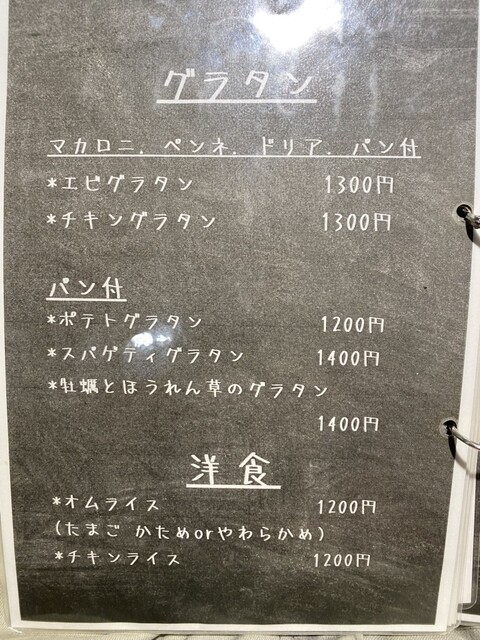 グラタン
マカロニ. ペンネ. ドリア. パン付
*エビグラタン 1300円
*チキングラタン 1300円
パン付
*ポテトグラタン 1200円
*スパゲティグラタン 1400円
*牡蠣とほうれん草のグラタン
1400円
洋食
*オムライス 1200円
(たまご かためorやわらかめ)
*チキンライス 1200円